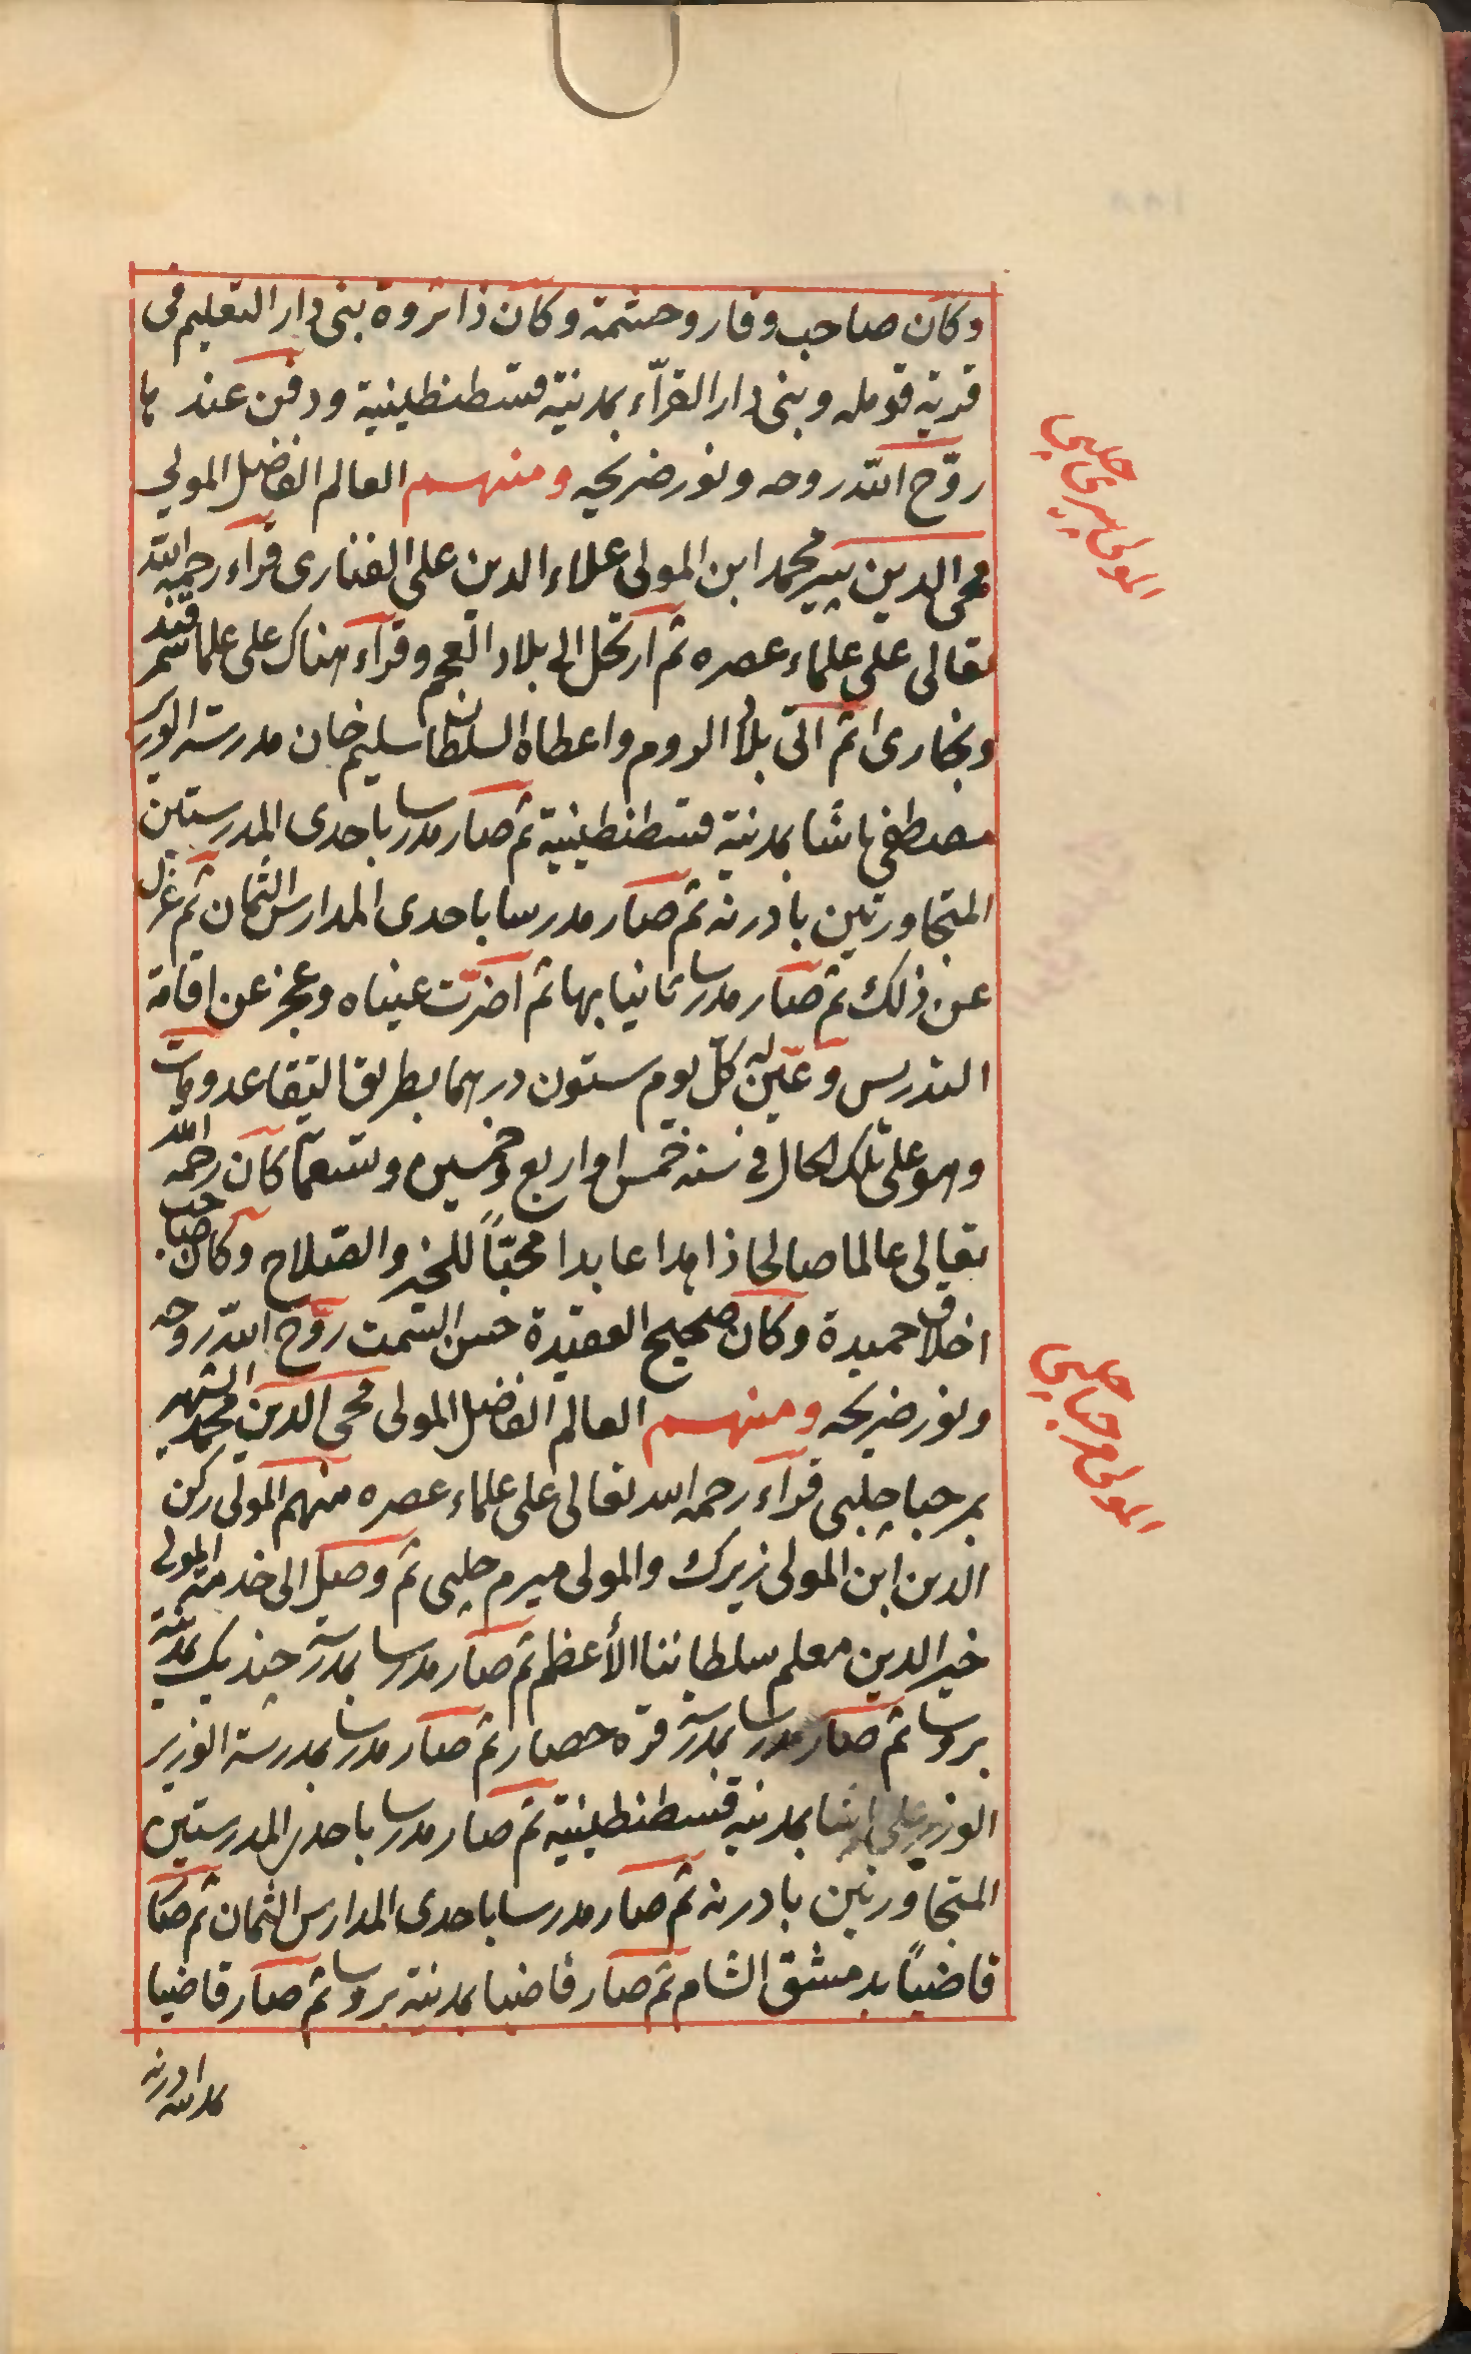 وكان صاحب وقار وحشمة وكان ذا ثروة بنى دار التعليم فى
قرية قومله وبنى دار القرّاء بمدينة قسطنطينية ودفن عند ها
روّح الله روحه ونور ضريحه ومنهم العالم الفاضل المولى
محى الدين پير محمد ابن المولى علاء الدين على الفنارى قرأء رحمه الله
تعالى على علماء عصره ثم ارتحل الى بلاد العجم وقرأء هناك على علما سمرقند
وبخارى ثم اتى بلاد الروم واعطاه السلطان سليم خان مدرسة الوزير
مصطفى پاشا بمدينة قسطنطينية ثم صار مدرسا باحدى المدرستين
المتجاورتين بادرنه ثم صار مدرسا باحدى المدارس الثمان ثم عزل
عن ذلك ثم صار مدرسا ثانيا بها ثم اضرّت عيناه وعجز عن اقامة
التدريس وعيّن له كلّ يوم ستون درهما بطريق التقاعد ومات
وهو على تلك الحال فى سنة خمس او اربع وخمسين وتسعمأ كان رحمه الله
تعالى عالما صالحا زاهدا عابدا محبّاً للخير والصّلاح وكان صاحب
اخلاق حميدة وكان صحيح العقيدة حسن السّمت روّح الله روحه
ونور ضريحه ومنهم العالم الفاضل المولى محى الدين محمد الشهير
بمرحبا چلبى قرأء رحمه الله تعالى على علماء عصره منهم المولى ركن
الدين ابن المولى زيرك والمولى ميرم چلبى ثم وصل الى خدمة المولى
خير الدين معلم سلطاننا الأعظم ثم صار مدرسا بمدرسة جنديك بمدينة
بروسا ثم صار مدرسا بمدرسة قره حصار ثم صار مدرسا بمدرسة الوزير
الوزير على پاشا بمدينه قسطنطينية ثم صار مدرسا باحدى المدرستين
المتجاورتين بادرنه ثم صار مدرسا باحدى المدارس الثمان ثم صار
قاضياً بدمشق الشام ثم صار قاضيا بمدينة بروسا ثم صار قاضيا
بمدينة ادرنه
المولى پيرى چلبى
المولى مرحبا چلبى